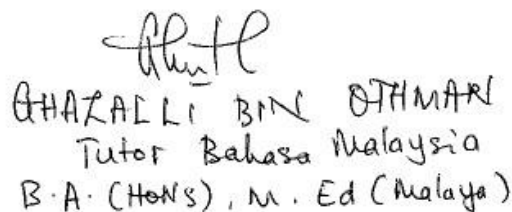 GHAZALLI BIN OTHMAN
Tutor Bahasa Malaysia
B.A. (HONS), M. Ed (Malaya)